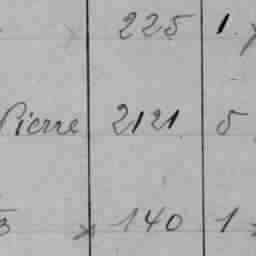 225 1.
Pierre 2121 5
3 x 140 1